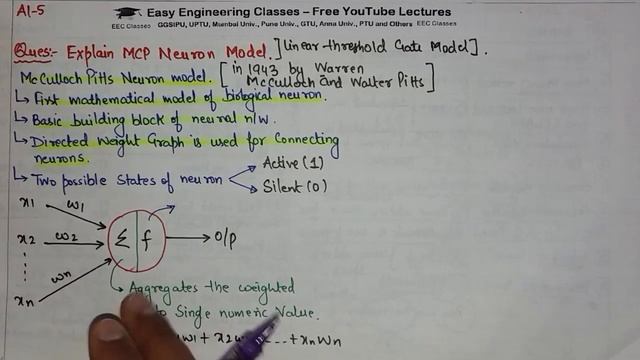 AI-5
Easy Engineering Classes – Free YouTube Lectures
EEC Classes GGSIPU, UPTU, Mumbai Univ., Pune Univ., GTU, Anna Univ., PTU and Others EEC Classes
Ques:- Explain MCP Neuron Model. [linear-threshold Gate Model].
McCulloch Pitts Neuron model. [in 1943 by Warren
McCulloch and Walter Pitts]
↳ First mathematical model of biological neuron.
↳ Basic building block of neural n/w.
↳ Directed Weight Graph is used for connecting
neurons.
↳ Two possible States of neuron
Active (1)
Silent (0)
x1 w1
x2 w2
xn wn
Σ f
O/p
Aggregates the weighted
to Single numeric Value.
w1 + x2 ... + xn wn